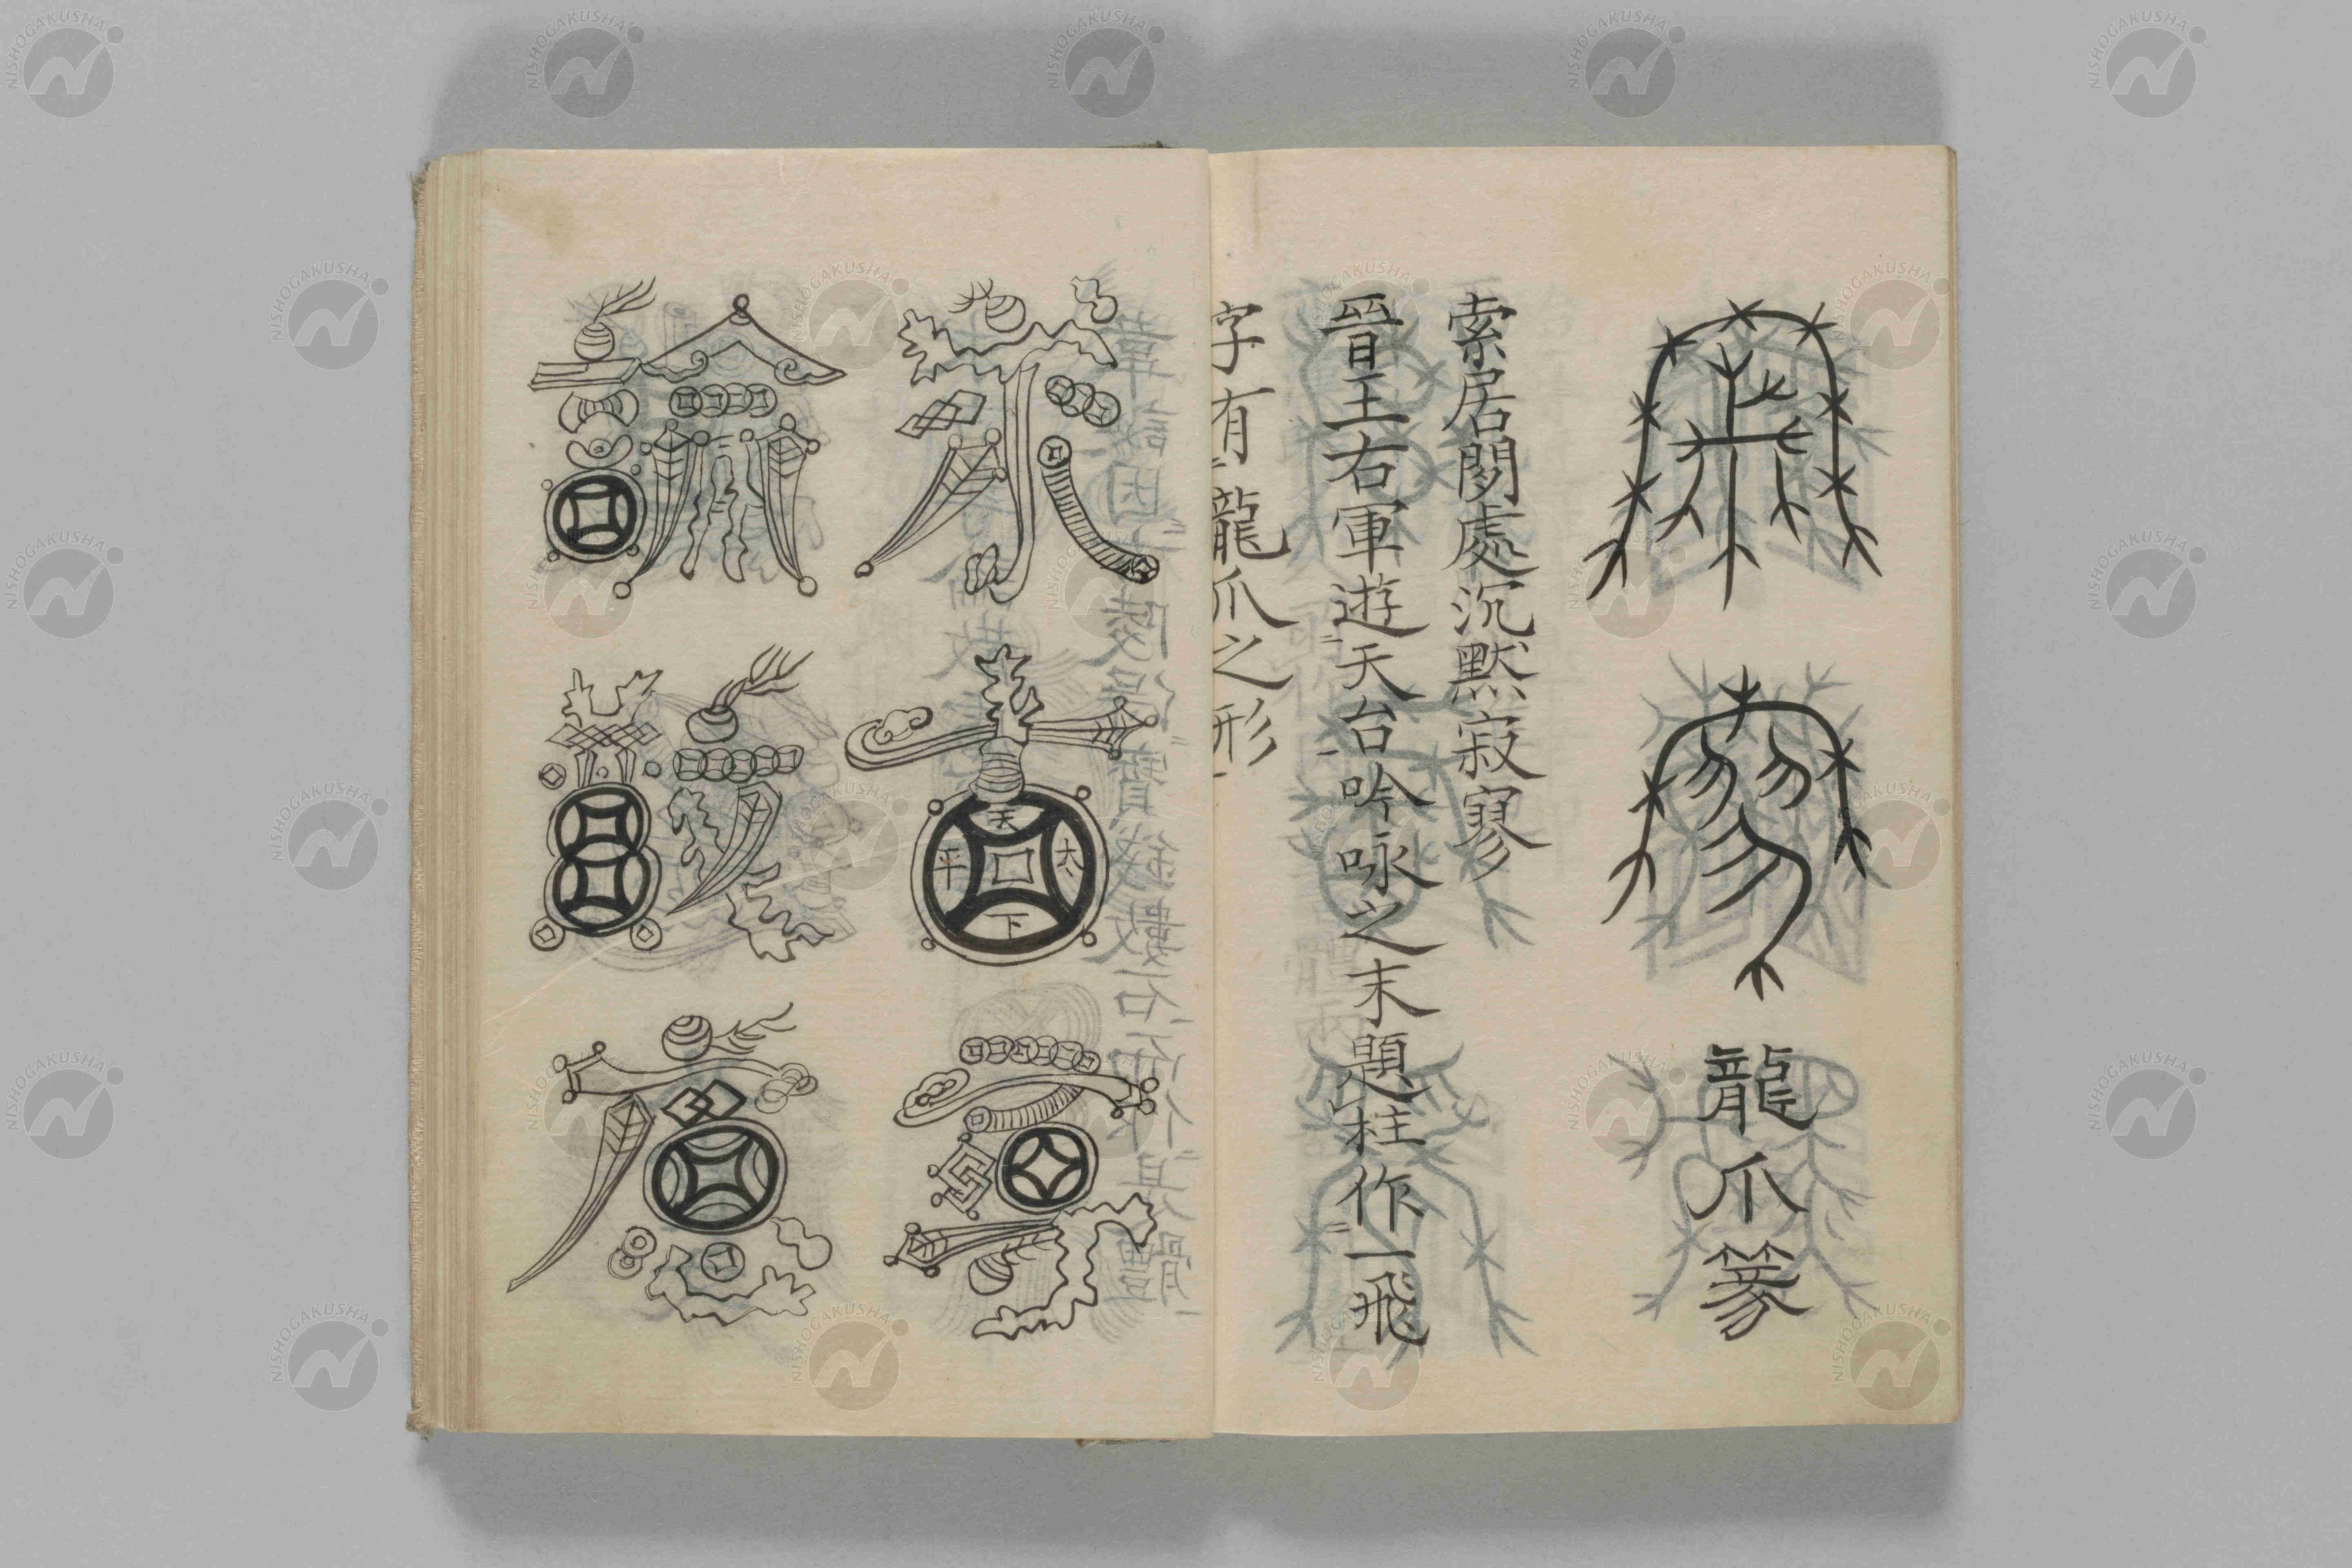 寂寥龍爪篆
索居閒處沉默寂寥
晉王右軍遊天台吟咏之末題柱作一飛
字有龍爪之形
求古尋
天下太平
論散慮